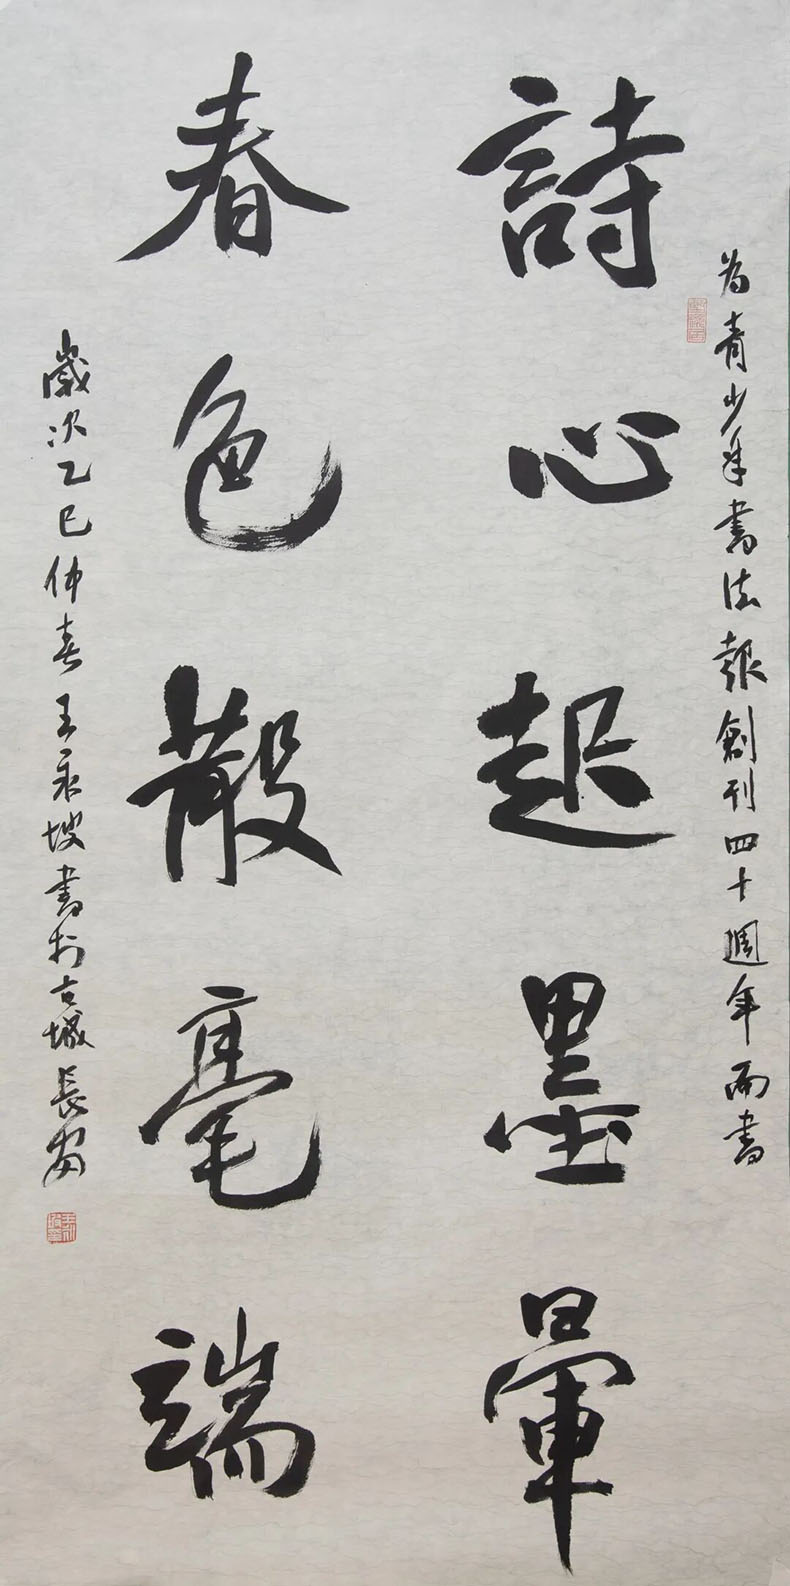 为青少年書法報創刊四十週年而書
詩心起墨暈
春色散毫端
歲次乙巳仲春王永坡書於古城長安